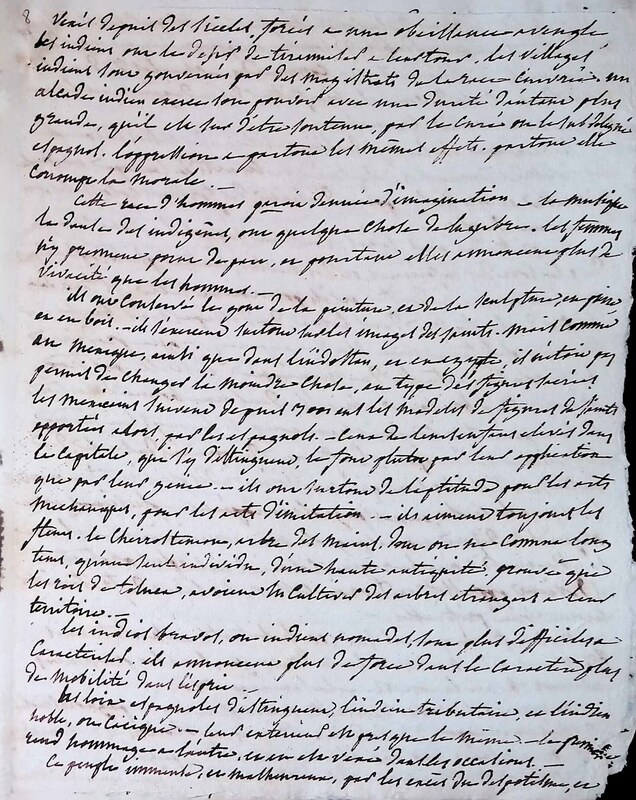 8
Vexés depuis des siecles, forcés a une obeissance aveugle
les indiens ont le desir de tiranniser a leur tour. les villages
indiens sont gouvernés par des magistrats de la race cuivrée. un
alcade indien exerce son pouvoir avec une dureté d'autant plus
grande, qu'il est sur d'être soutenu, par le curé ou le subdelegué
espagnol. l'oppression a partout les mêmes effets. partout elle
corrompt la morale. —
Cette race d'hommes paroit denuée d'imagination — la musique
la danse des indigènes, ont quelque chose de lugubre. les femmes
n'y prennent point de part, et pourtant elles annoncent plus de
vivacité que les hommes. —
ils ont conservé le gout de la peinture, et de la sculpture, en pierre
et en bois. — ils s'exercent surtout sur les images des saints. mais comme
au mexique, ainsi que dans l'indostan, et en egypte, il n'etoit pas
permis de changer la moindre chose, au type des figures sacrées
les mexicains suivent depuis 300 ans les modeles de figures de saints
apportées alors, par les espagnols. — ceux de leurs enfans elevés dans
la capitale, qui s'y distinguent, le font plutot par leur application
que par leur genie. — ils ont surtout de l'aptitude pour les arts
mechaniques, pour les arts d'imitation. — ils aiment toujours les
fleurs. le Cheirostemon, arbre des mains, dont on ne connut long
tems, qu'un seul individu, d'une haute antiquité prouve que
les rois de toluca, avoient su cultiver des arbres etrangers a leur
territoire. —
les indios bravos, ou indiens nomades, sont plus difficiles a
caracteriser. ils annoncent plus de force dans le caractere plus
de mobilité dans l'esprit. —
les loix espagnoles distinguent, l'indien tributaire, et l'indien
noble, ou cacique. — leur exterieur est presque le même. — le premier
rend hommage a l'autre, et en est vexé dans les occasions. —
Ce peuple immense, et malheureux, par les excès du despotisme, et